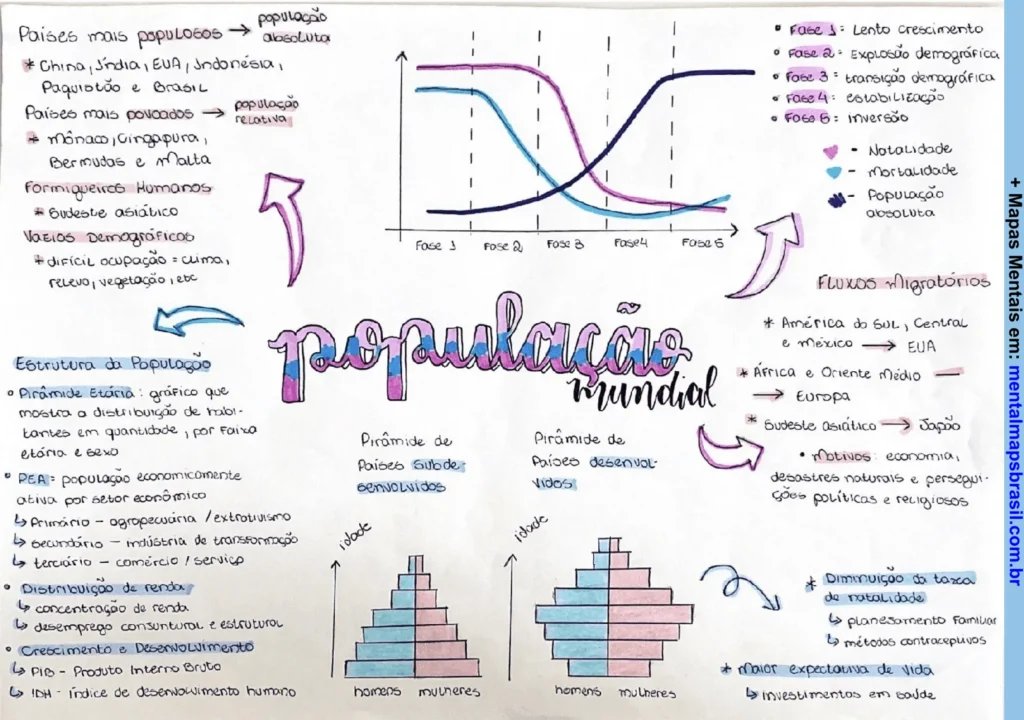 Países mais populosos → população
absoluta
* China, Índia, EUA, Indonésia,
Paquistão e Brasil
Países mais povoados → população
relativa
* Mônaco, Cingapura,
Bermudas e Malta
Formigueiros Humanos
* Sudeste asiático
Vazios Demográficos
* difícil ocupação = clima,
relevo, vegetação, etc
Fase 1
Fase 2
Fase 3
Fase 4
Fase 5
• Fase 1: Lento crescimento
• Fase 2: Explosão demográfica
• Fase 3: transição demográfica
• Fase 4: estabilização
• Fase 5: inversão
- Natalidade
- Mortalidade
- População
absoluta
população
mundial
Fluxos Migratórios
* América do Sul, Central
e México → EUA
* África e Oriente Médio —
→ Europa
* Sudeste asiático → Japão
• Motivos: economia,
desastres naturais e persegui-
ções políticas e religiosos
Estrutura da População
• Pirâmide Etária: gráfico que
mostra a distribuição de habi-
tantes em quantidade, por faixa
etária e sexo
• PEA: população economicamente
ativa por setor econômico
↳ Primário - agropecuária / extrativismo
↳ secundário - indústria de transformação
↳ terciário - comércio / serviço
• Distribuição de renda
↳ concentração de renda
↳ desemprego conjuntural e estrutural
• Crescimento e Desenvolvimento
↳ PIB - Produto Interno Bruto
↳ IDH - índice de desenvolvimento humano
Pirâmide de
Países subde
senvolvidos
idade
homens mulheres
Pirâmide de
Países desenvol-
vidos
idade
homens mulheres
* Diminuição da taxa
de natalidade
↳ planejamento familiar
↳ métodos contraceptivos
* Maior expectativa de vida
↳ investimentos em saúde
+ Mapas Mentais em: mentalmapsbrasil.com.br